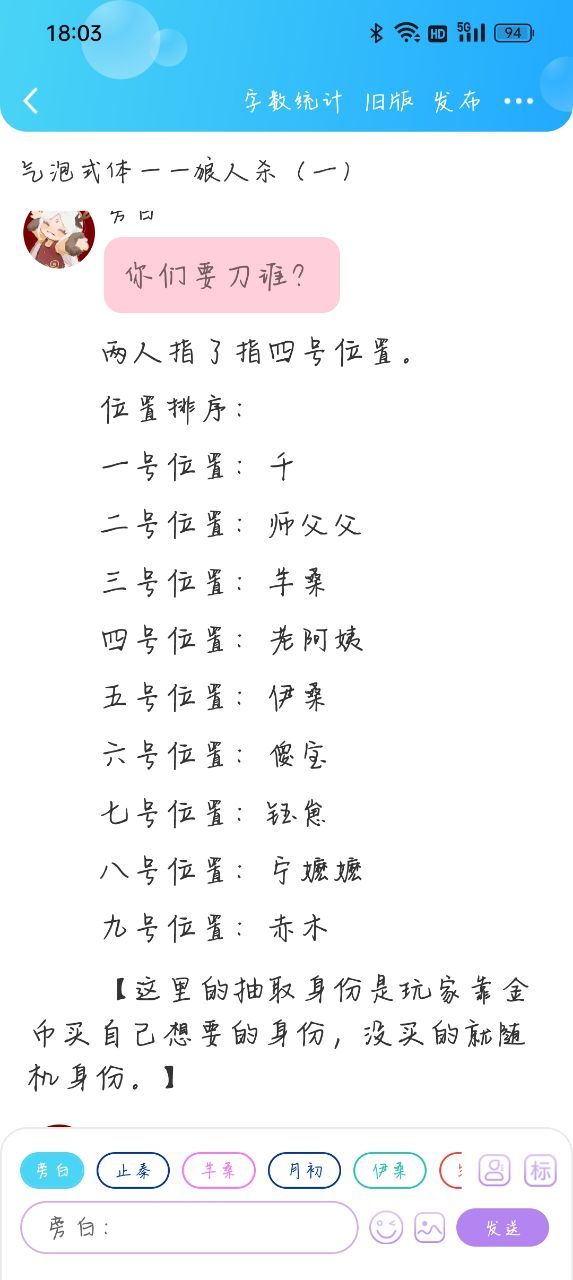 18:03
HD
5G
94
字数统计 旧版 发布
气泡式体一一狼人杀（一）
旁白
你们要刀谁？
两人指了指四号位置。
位置排序：
一号位置：千
二号位置：师父父
三号位置：芈桑
四号位置：老阿姨
五号位置：伊桑
六号位置：傻宝
七号位置：钰怠
八号位置：宁嬷嬷
九号位置：赤木
【这里的抽取身份是玩家靠金
币买自己想要的身份，没买的就随
机身份。】
旁白 止秦 芈桑 月初 伊桑
标
旁白：
发送